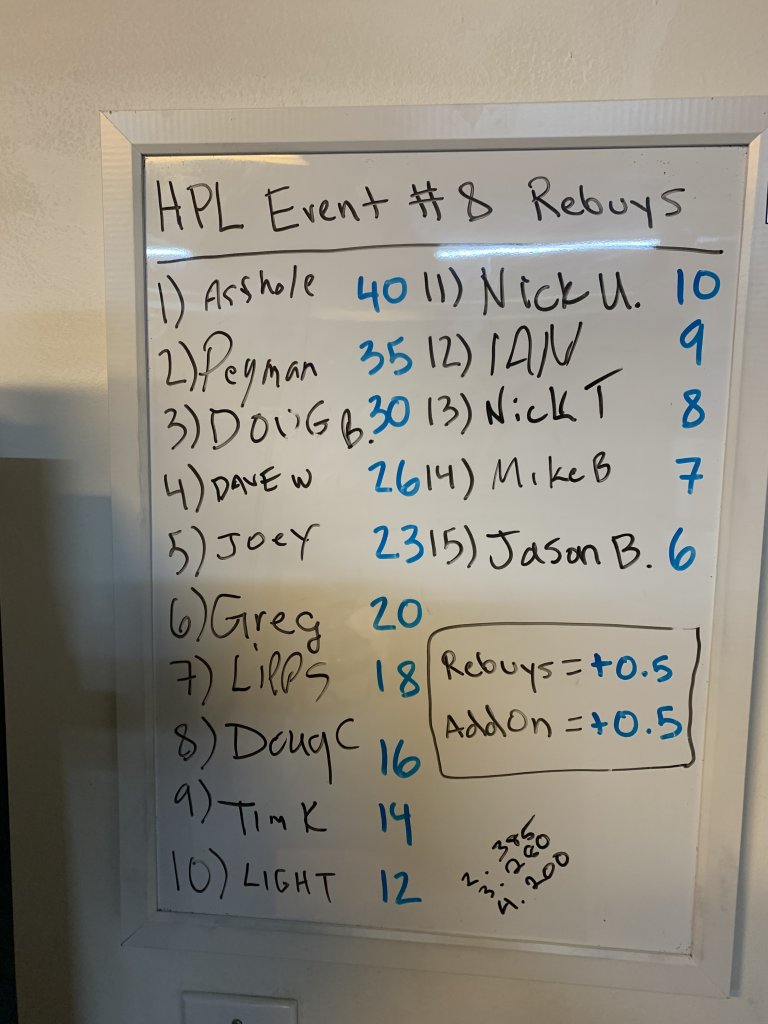 HPL Event #8 Rebuys
1) Asshole 40
2) Peyman 35
3) DOUG B. 30
4) DAVE W 26
5) JOEY 23
6) Greg 20
7) LiPPS 18
8) Doug C 16
9) Tim K 14
10) LIGHT 12
11) Nick U. 10
12) IAN 9
13) Nick T 8
14) Mike B 7
15) Jason B. 6
Rebuys = +0.5
AddOn = +0.5
2. 385
3. 260
4. 200